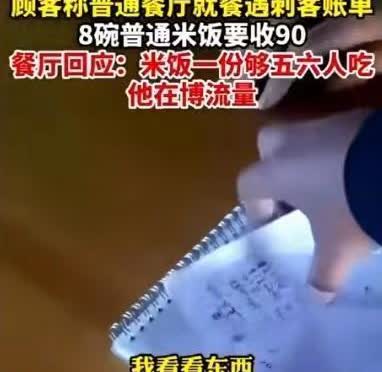 顾客称普通餐厅就餐遇刺客账单
8碗普通米饭要收90
餐厅回应：米饭一份够五六人吃
他在博流量
我看看东西